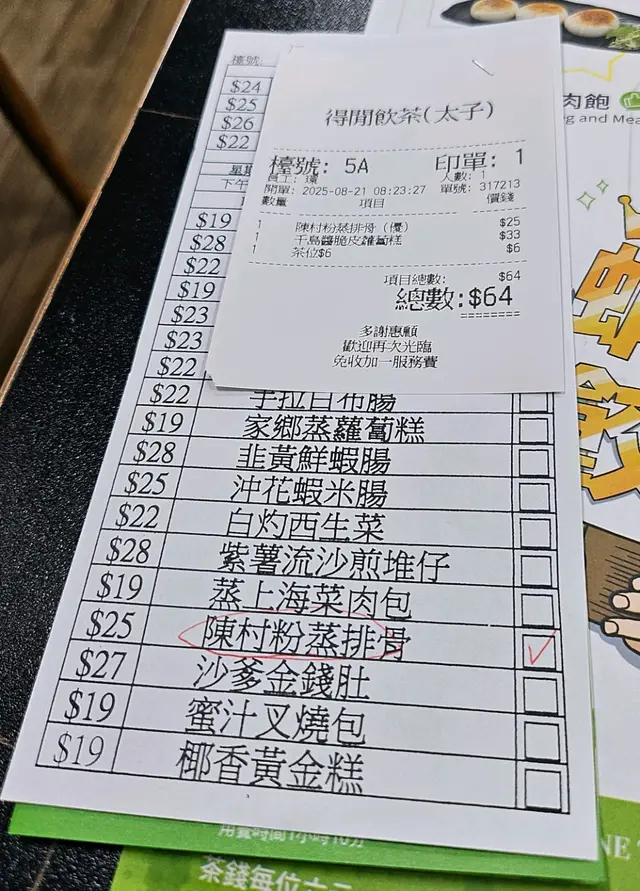 檯號:
$24
$25
$26
$22
下午
$19
$28
$22
$19
$23
$23
$22
得閒飲茶(太子)
檯號: 5A 印單: 1
員工: 環 人數: 1
開單: 2025-08-21 08:23:27 單號: 317213
數量 項目 價錢
1 陳村粉蒸排骨 (優) $25
1 千島醬脆皮蘿蔔糕 $33
1 茶位$6 $6
項目總數: $64
總數:$64
多謝惠顧
歡迎再次光臨
免收加一服務費
$22 手拉白布腸
$19 家鄉蒸蘿蔔糕
$28 韭黃鮮蝦腸
$25 沖花蝦米腸
$22 白灼西生菜
$28 紫薯流沙煎堆仔
$19 蒸上海菜肉包
$25 陳村粉蒸排骨 ✓
$27 沙爹金錢肚
$19 蜜汁叉燒包
$19 椰香黃金糕
肉飽
and Mea
用餐時間1小時10分
茶錢每位六元